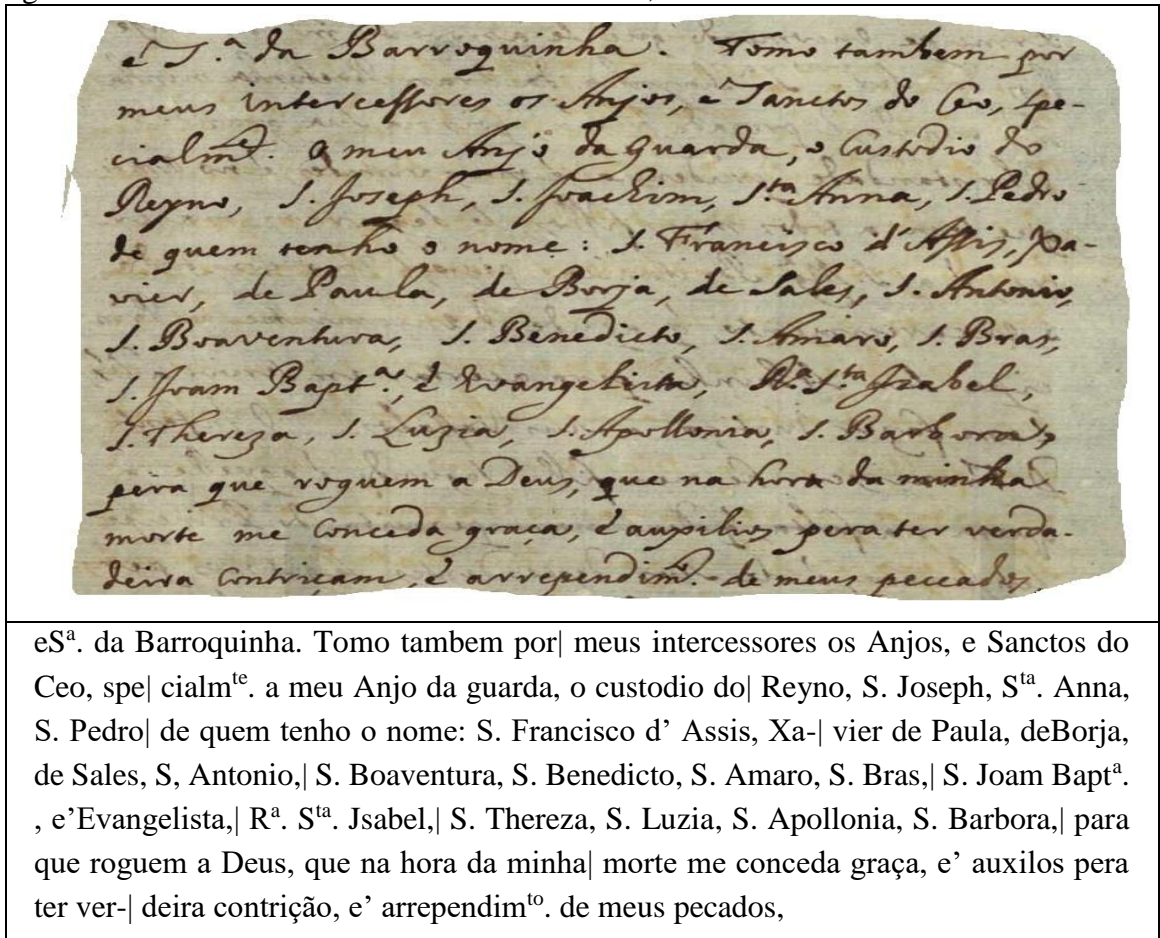 è S.ª da Barroquinha. Tomo tambem por
meus intercessores os Anjos, è Sanctos do Ceo, spe-
cialm.te a meu Anjo da guarda, o Custodio do
Reyno, S. Joseph, S. Joachim, S.ta Anna, S. Pedro
de quem tenho o nome: S. Francisco d'Assis, Xa-
vier, de Paula, de Borja, de Sales, S. Antonio,
S. Boaventura, S. Benedicto, S. Amaro, S. Bras,
S. Joam Bapt.ª, è Evangelista, R.ª S.ta Izabel,
S. Thereza, S. Luzia, S. Apollonia, S. Barbora,
pera que roguem a Deus, que na hora da minha
morte me conceda graça, è auxilios pera ter verda-
deira contriçam, è arrependim.to de meus peccados,
eSª. da Barroquinha. Tomo tambem por| meus intercessores os Anjos, e Sanctos do
Ceo, spe| cialmᵗᵉ. a meu Anjo da guarda, o custodio do| Reyno, S. Joseph, Sᵗᵃ. Anna,
S. Pedro| de quem tenho o nome: S. Francisco d’ Assis, Xa-| vier de Paula, deBorja,
de Sales, S, Antonio,| S. Boaventura, S. Benedicto, S. Amaro, S. Bras,| S. Joam Baptª.
, e’Evangelista,| Rª. Sᵗᵃ. Jsabel,| S. Thereza, S. Luzia, S. Apollonia, S. Barbora,| para
que roguem a Deus, que na hora da minha| morte me conceda graça, e’ auxilos pera
ter ver-| deira contrição, e’ arrependimᵗᵒ. de meus pecados,